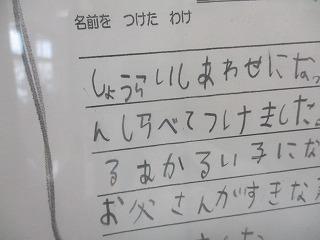 名前を つけた わけ
しょうらいしあわせになっ
んしらべてつけました。
るあかるい子にな
お父さんがすきな